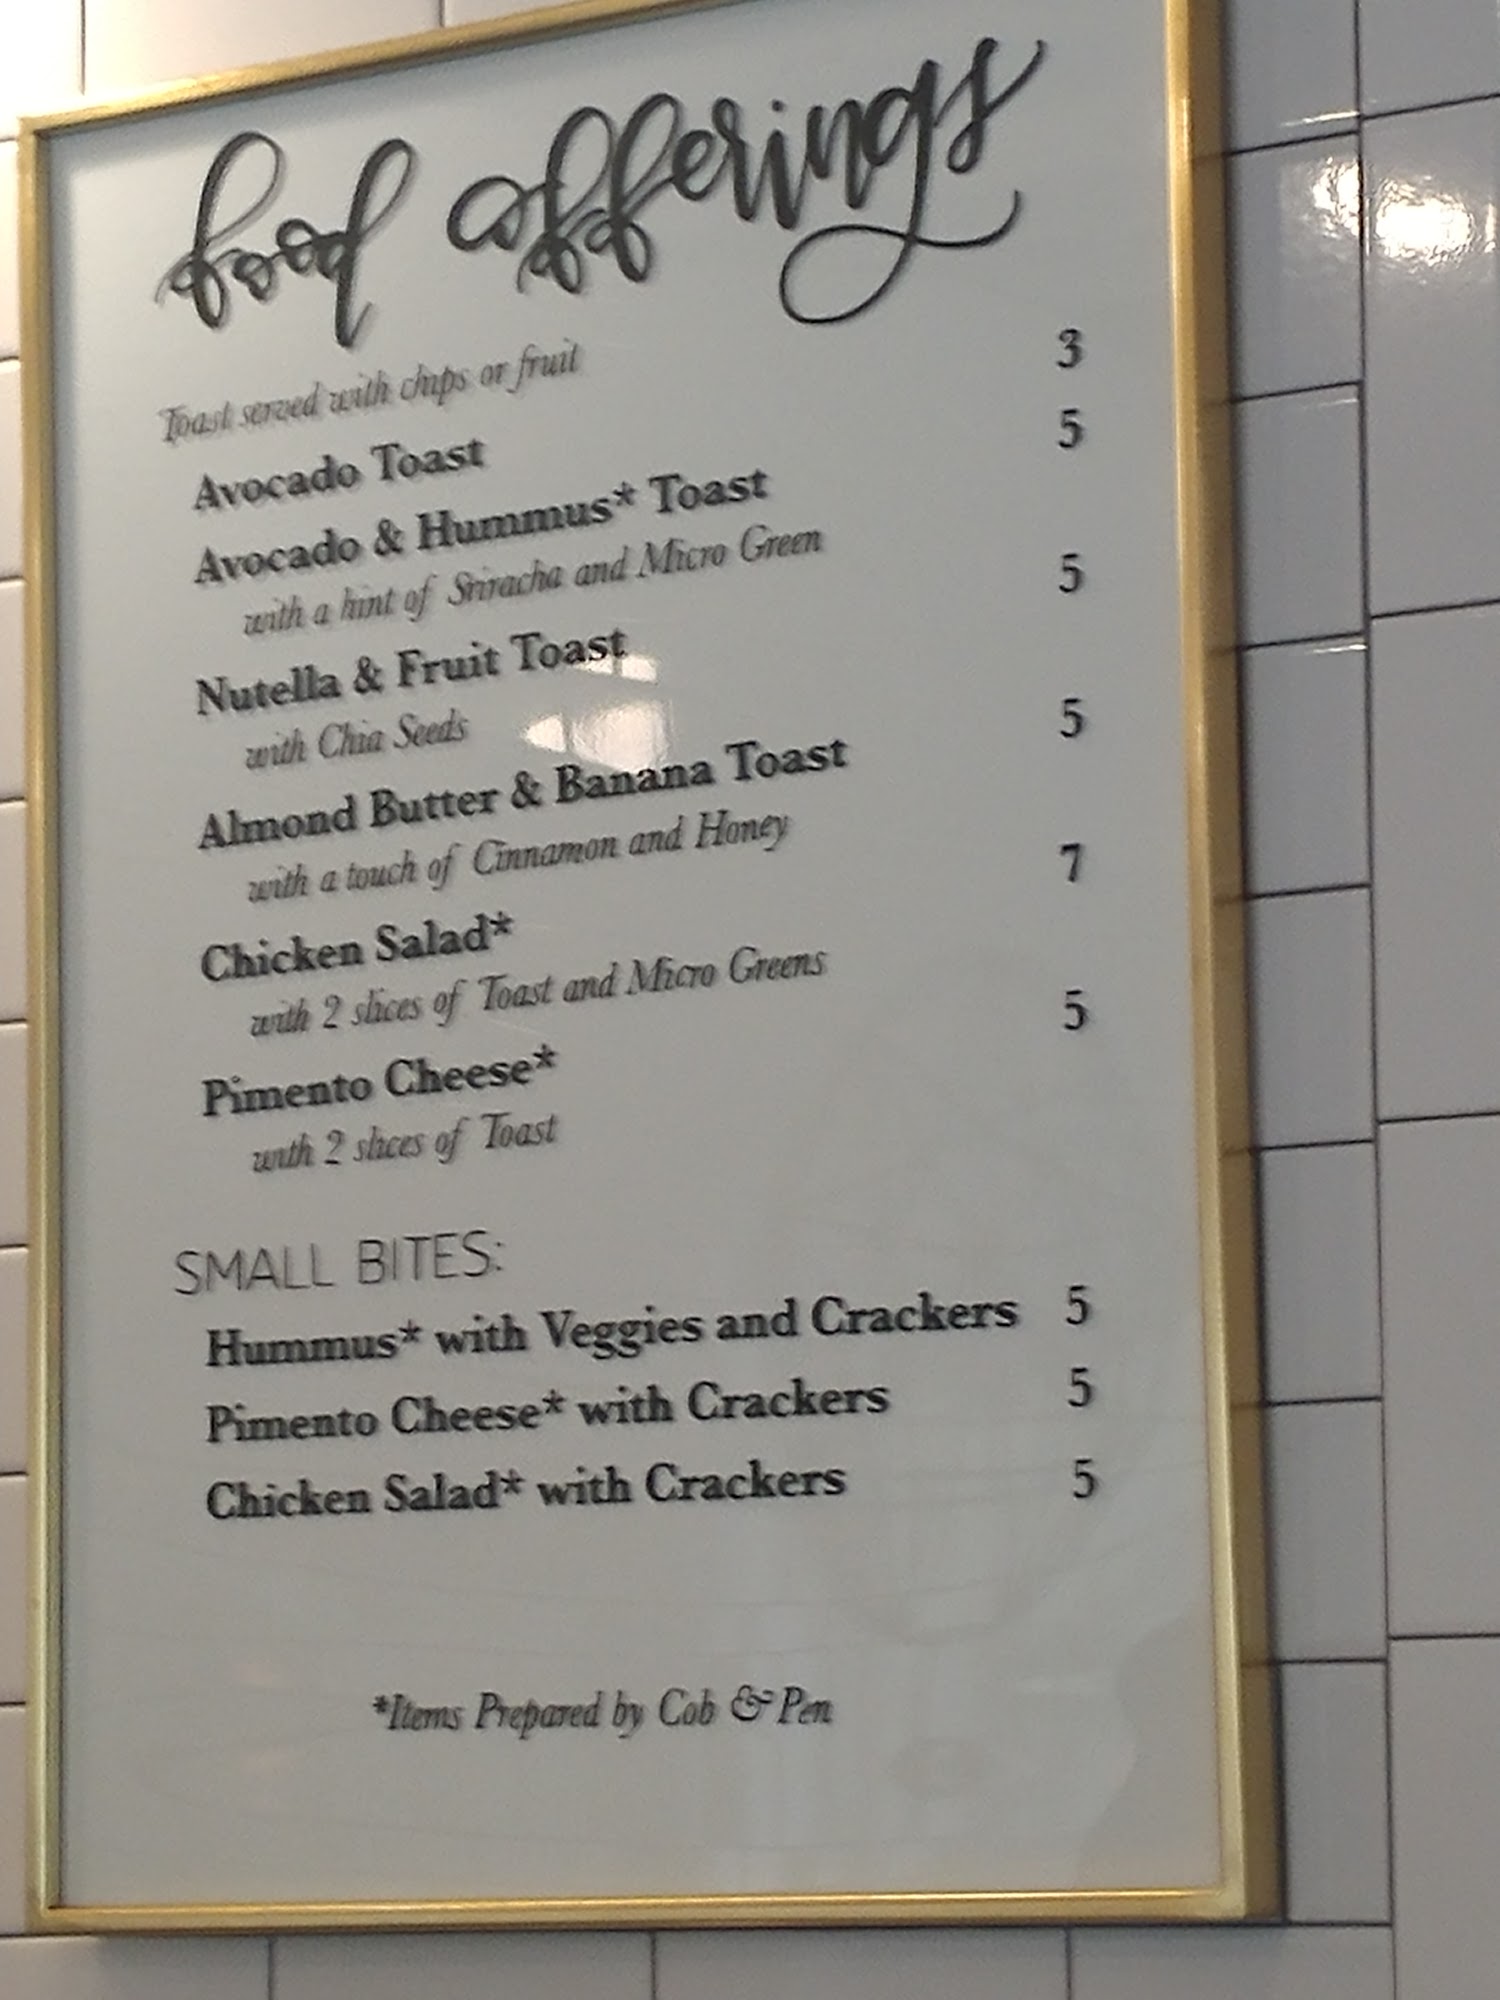 food offerings
Toast served with chips or fruit
Avocado Toast 3
Avocado & Hummus* Toast 5
with a hint of Sriracha and Micro Green
Nutella & Fruit Toast 5
with Chia Seeds
Almond Butter & Banana Toast 5
with a touch of Cinnamon and Honey
Chicken Salad* 7
with 2 slices of Toast and Micro Greens
Pimento Cheese* 5
with 2 slices of Toast
SMALL BITES:
Hummus* with Veggies and Crackers 5
Pimento Cheese* with Crackers 5
Chicken Salad* with Crackers 5
*Items Prepared by Cob & Pen